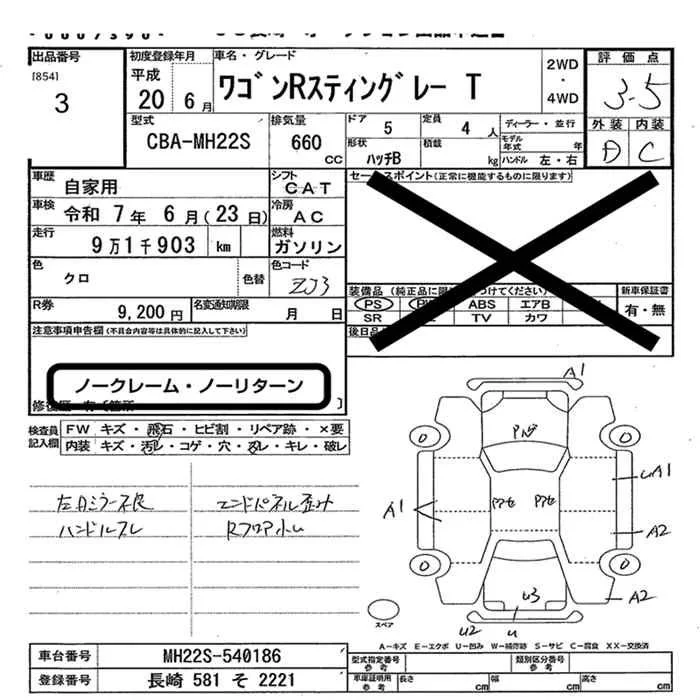 出品番号
[854]
3
初度登録年月
平成
20 6月
車名・グレード
ワゴンRスティングレー T
2WD
・
4WD
評価点
3.5
外装 内装
D C
型式
CBA-MH22S
排気量
660
CC
ドア
5
定員
4 人
ディーラー・並行
形状
ハッチB
積載
kg
モデル年式
年
ハンドル 左・右
車歴
自家用
シフト
CAT
車検
令和 7年 6月(23日)
冷房
AC
走行
9万1千903 km
燃料
ガソリン
色
クロ
色替
色コード
ZJ3
R券
9,200円
名変通知期限
月 日
セールスポイント(正常に機能するものに限ります)
装備品(純正品に限
つけてください)
新車保証書
PS
ABS
エアB
有・無
SR
TV
カワ
後日品
注意事項申告欄(不具合内容等は具体的に記入して下さい)
ノークレーム・ノーリターン
検査員
記入欄
FW キズ・飛石・ヒビ割・リペア跡・×要
内装 キズ・汚レ・コゲ・穴・スレ・キレ・破レ
左ドミラー不良
ハンドルスレ
エンドパネル歪み
Rフロア小u
A1
A1
uA1
A2
A2
u3
u2
u
スペア
A-キズ E-エクボ U-凹み W-補修跡 S-サビ C-腐食 XX-交換済
車台番号
MH22S-540186
登録番号
長崎 581 そ 2221
型式指定番号
参考
類別区分番号
参考
車庫証明用
参考
長さ
cm
幅
cm
高さ
cm